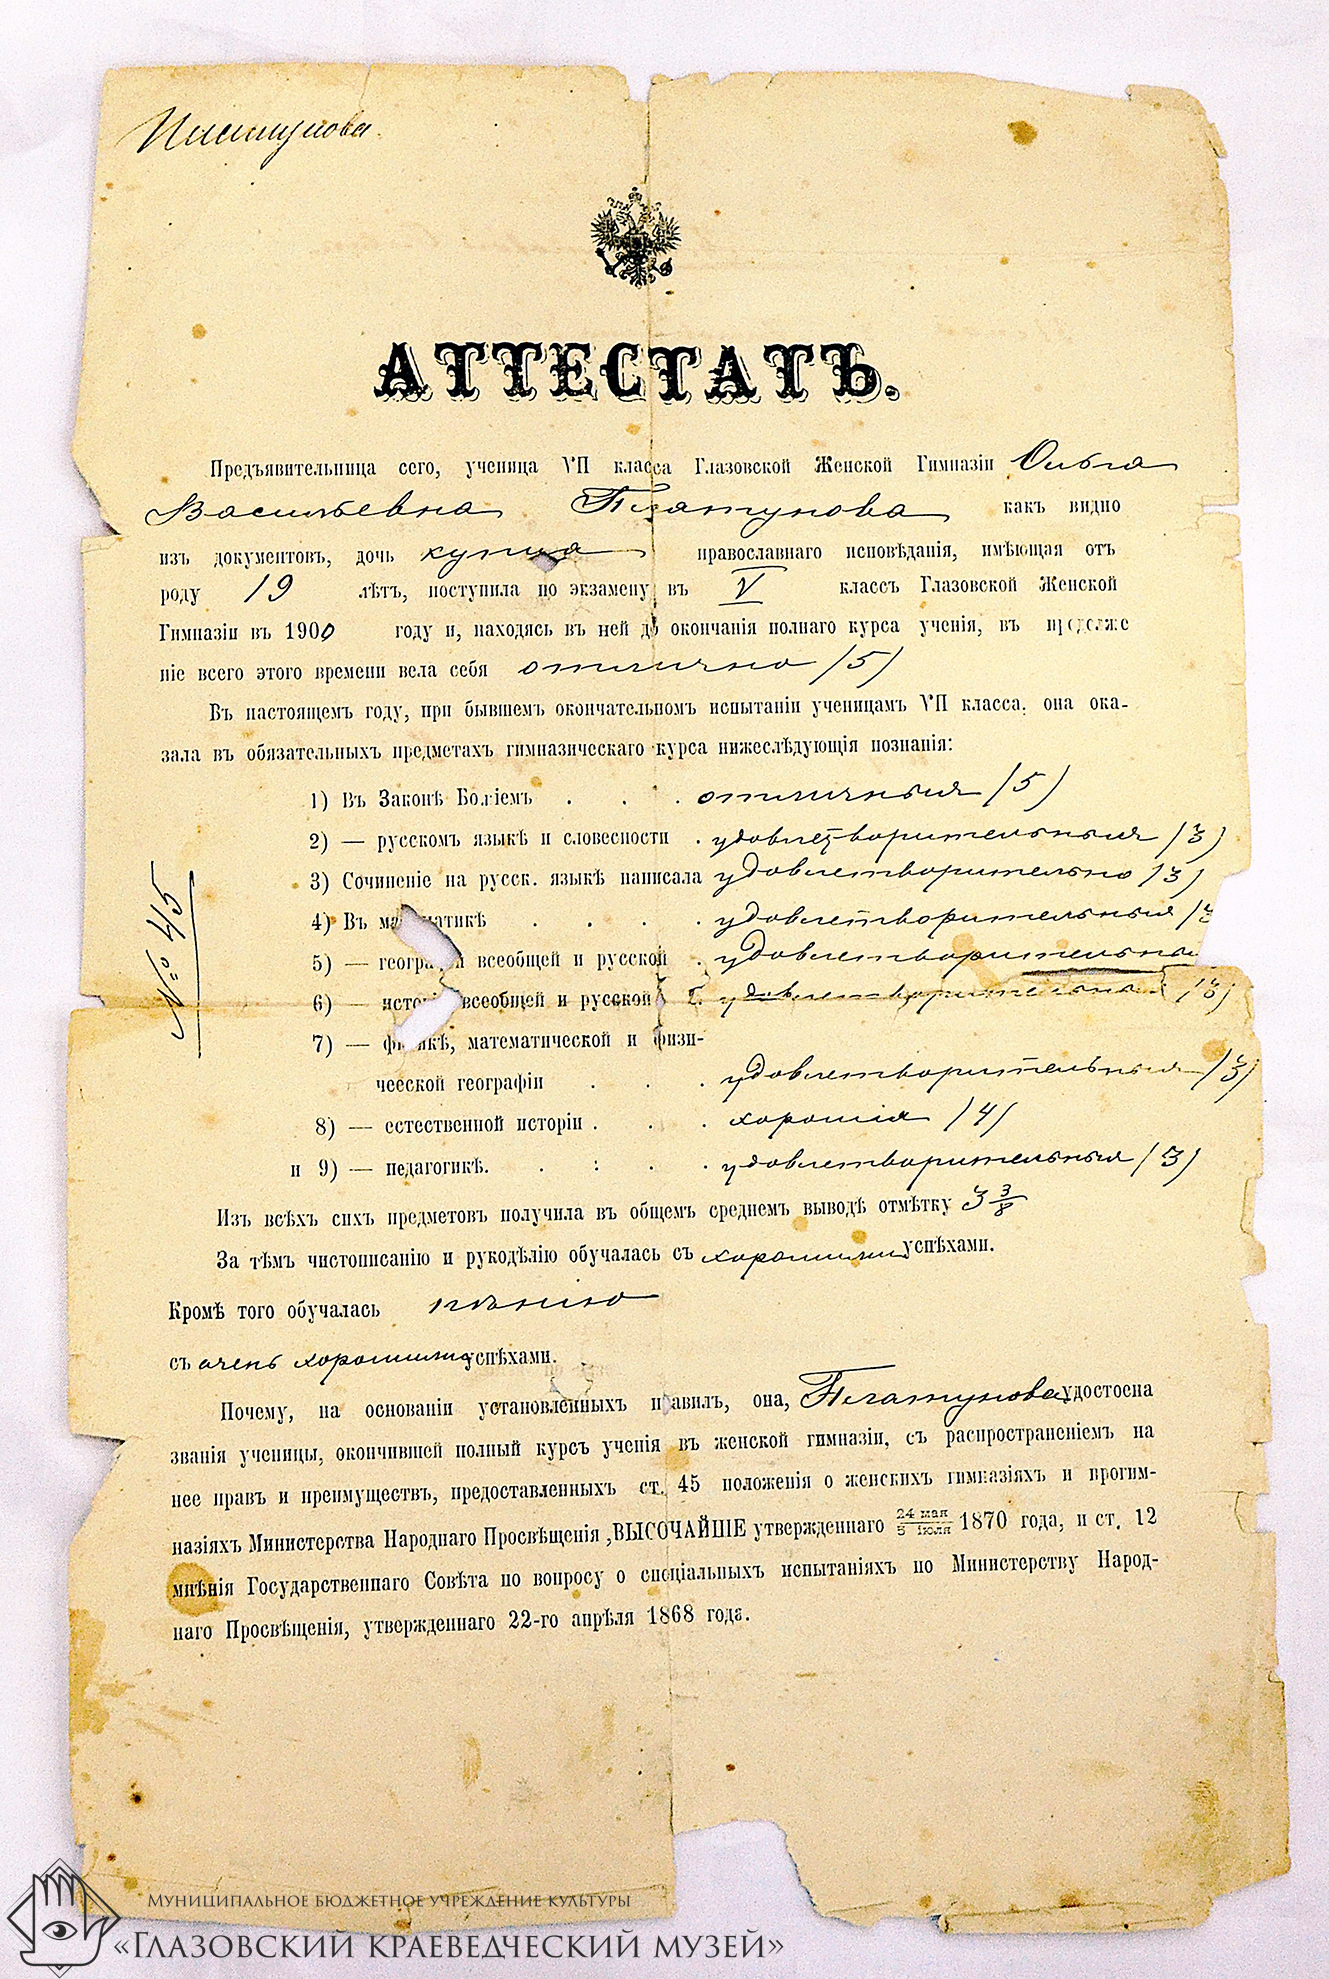 Платунова
АТТЕСТАТЪ.
Предъявительница сего, ученица VII класса Глазовской Женской Гимназіи Ольга
Васильевна Платунова какъ видно
изъ документовъ, дочь купца православнаго исповѣданія, имѣющая отъ
роду 19 лѣтъ, поступила по экзамену въ V классъ Глазовской Женской
Гимназіи въ 1900 году и, находясь въ ней до окончанія полнаго курса ученія, въ продолже
ніе всего этого времени вела себя отлично (5)
Въ настоящемъ году, при бывшемъ окончательномъ испытаніи ученицамъ VII класса, она ока-
зала въ обязательныхъ предметахъ гимназическаго курса нижеслѣдующія познанія:
1) Въ Законѣ Божіемъ . . . отличныя (5)
2) — русскомъ языкѣ и словесности . удовлетворительныя (3)
3) Сочиненіе на русск. языкѣ написала удовлетворительно (3)
4) Въ математикѣ . . . . удовлетворительныя (3
5) — географіи всеобщей и русской . удовлетворительны
6) — исторіи всеобщей и русской . удовлетворительныя (3)
7) — физикѣ, математической и физи-
ческой географіи . . . удовлетворительныя (3)
8) — естественной исторіи . . . хорошія (4)
и 9) — педагогикѣ. . . . . удовлетворительныя (3)
Изъ всѣхъ сихъ предметовъ получила въ общемъ среднемъ выводѣ отмѣтку 3 3/8
За тѣмъ чистописанію и рукодѣлію обучалась съ хорошими успѣхами.
Кромѣ того обучалась пѣнію
съ очень хорошими успѣхами.
Почему, на основаніи установленныхъ правилъ, она, Платунова удостоена
званія ученицы, окончившей полный курсъ ученія въ женской гимназіи, съ распространеніемъ на
нее правъ и преимуществъ, предоставленныхъ ст. 45 положенія о женскихъ гимназіяхъ и прогим-
назіяхъ Министерства Народнаго Просвѣщенія ,ВЫСОЧАЙШЕ утвержденнаго 24 мая/5 іюля 1870 года, и ст. 12
мнѣнія Государственнаго Совѣта по вопросу о спеціальныхъ испытаніяхъ по Министерству Народ-
наго Просвѣщенія, утвержденнаго 22-го апрѣля 1868 года.
№ 45
Муниципальное бюджетное учреждение культуры
«Глазовский краеведческий музей»